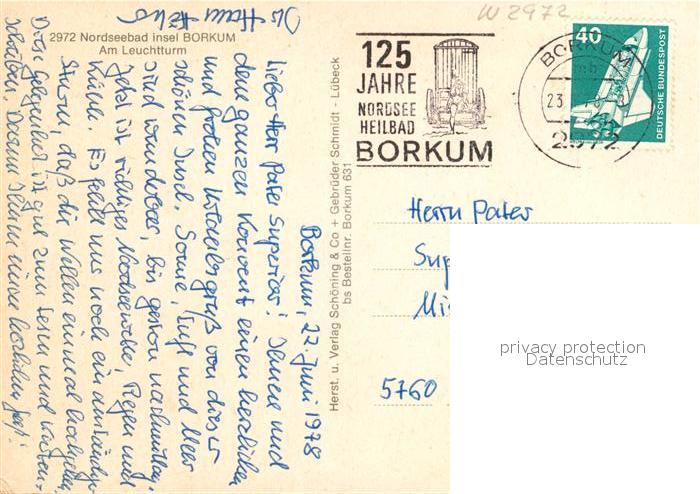 W 2972
2972 Nordseebad Insel BORKUM
Am Leuchtturm
125
JAHRE
NORDSEE
HEILBAD
BORKUM
BORKUM
23.
2972
40
DEUTSCHE BUNDESPOST
Herst. u. Verlag Schöning & Co + Gebrüder Schmidt - Lübeck
bs Bestellnr. Borkum 631
Borkum, 22. Juni 1978
Lieber Herr Pater Superior! Ihnen und
dem ganzen Konvent einen herzlichen
und frohen Urlaubsgruß von dieser
schönen Insel. Sonne, Luft und Meer
sind wunderbar, bis gestern nachmittag.
Jetzt ist richtiges Nordseewetter, Regen und
Kühle. Es fehlt uns noch ein anständiger
Sturm, daß die Wellen einmal hochgehen.
Diese Gelegenheit ist gut zum Lesen und Karten-
schreiben. Darum Ihnen einen herzlichen Gruß!
Herrn Pater
Sup
Mi
5760
privacy protection
Datenschutz